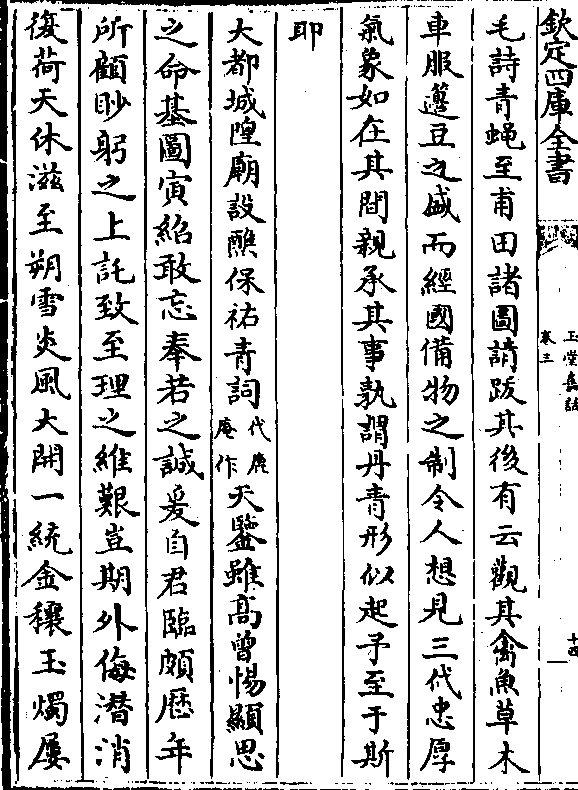 欽定四庫全書
玉堂嘉話
卷三
十四
毛詩青蝇至甫田諸圖請跋其後有云觀其禽魚草木
車服籩豆之盛而經國備物之制令人想見三代忠厚
氣象如在其間親承其事孰謂丹青形似起予至于斯
耶
大都城隍廟設醮保祐青詞代鹿庵作天鑒雖高曾惕顯思
之命基圖寅紹敢忘奉若之誠爰自君臨頗歴年
所顧眇躬之上託致至理之維艱豈期外侮潜消
復荷天休滋至朔雪炎風大開一統金穰玉燭屢